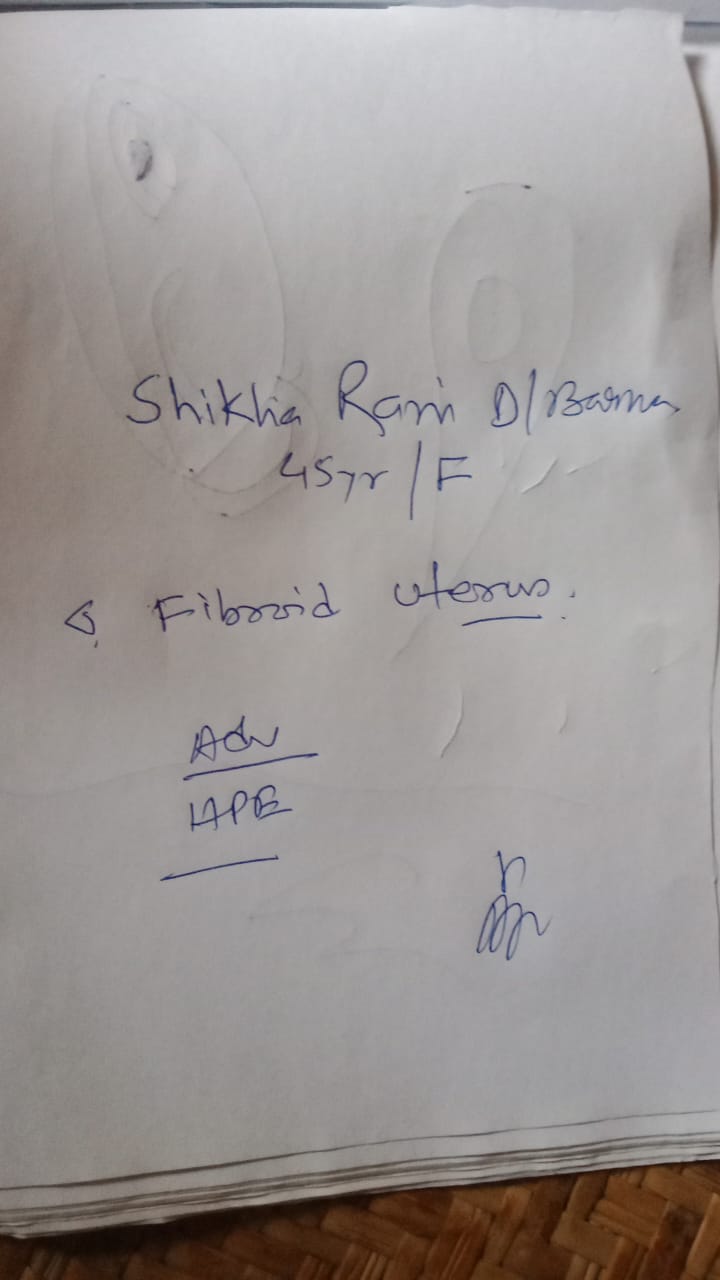 Shikha Rani D/Barma
45yr/F
Fibroid uterus.
Adv
HPE